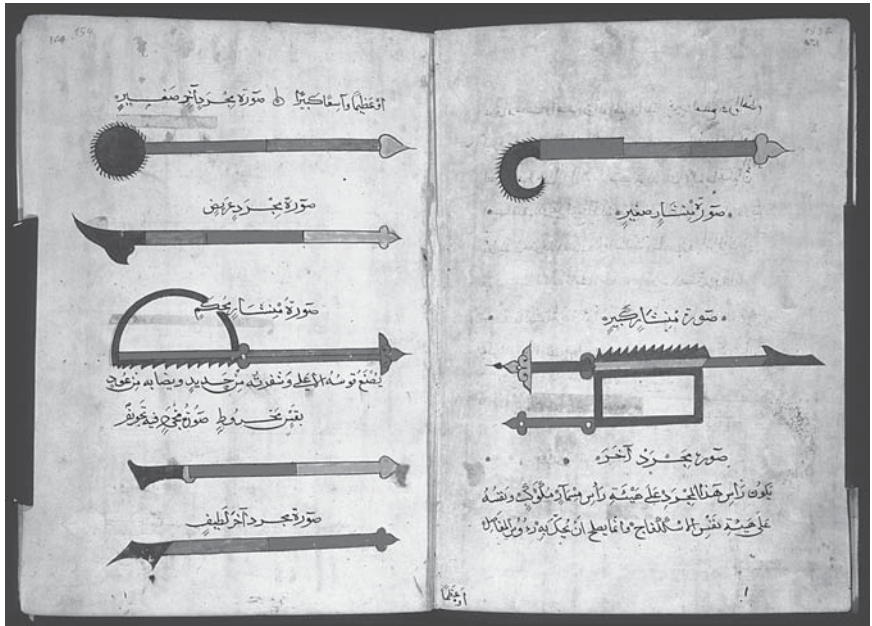 صورة منشار صغيره
صورة منشار كبيره
صورة مجرد آخر
يكون رأس هذا المجرد على هيئة رأس مسمار مكوكب ونقشه
على هيئة نقش الاسكلفاج وانما يصلح ان يحك به رووس المفاصل
او عظيما
154
او عظيما واسعا كبيرا صورة مجرد آخر صغيره
صورة مجرد عريض
صورة منشار محكم
يصنع قوسه الاعلى وشفرته من حديد ونصابه من عود
بقس مخروط صورة مجرد فيه تجويف
صورة مجرد آخر لطيف